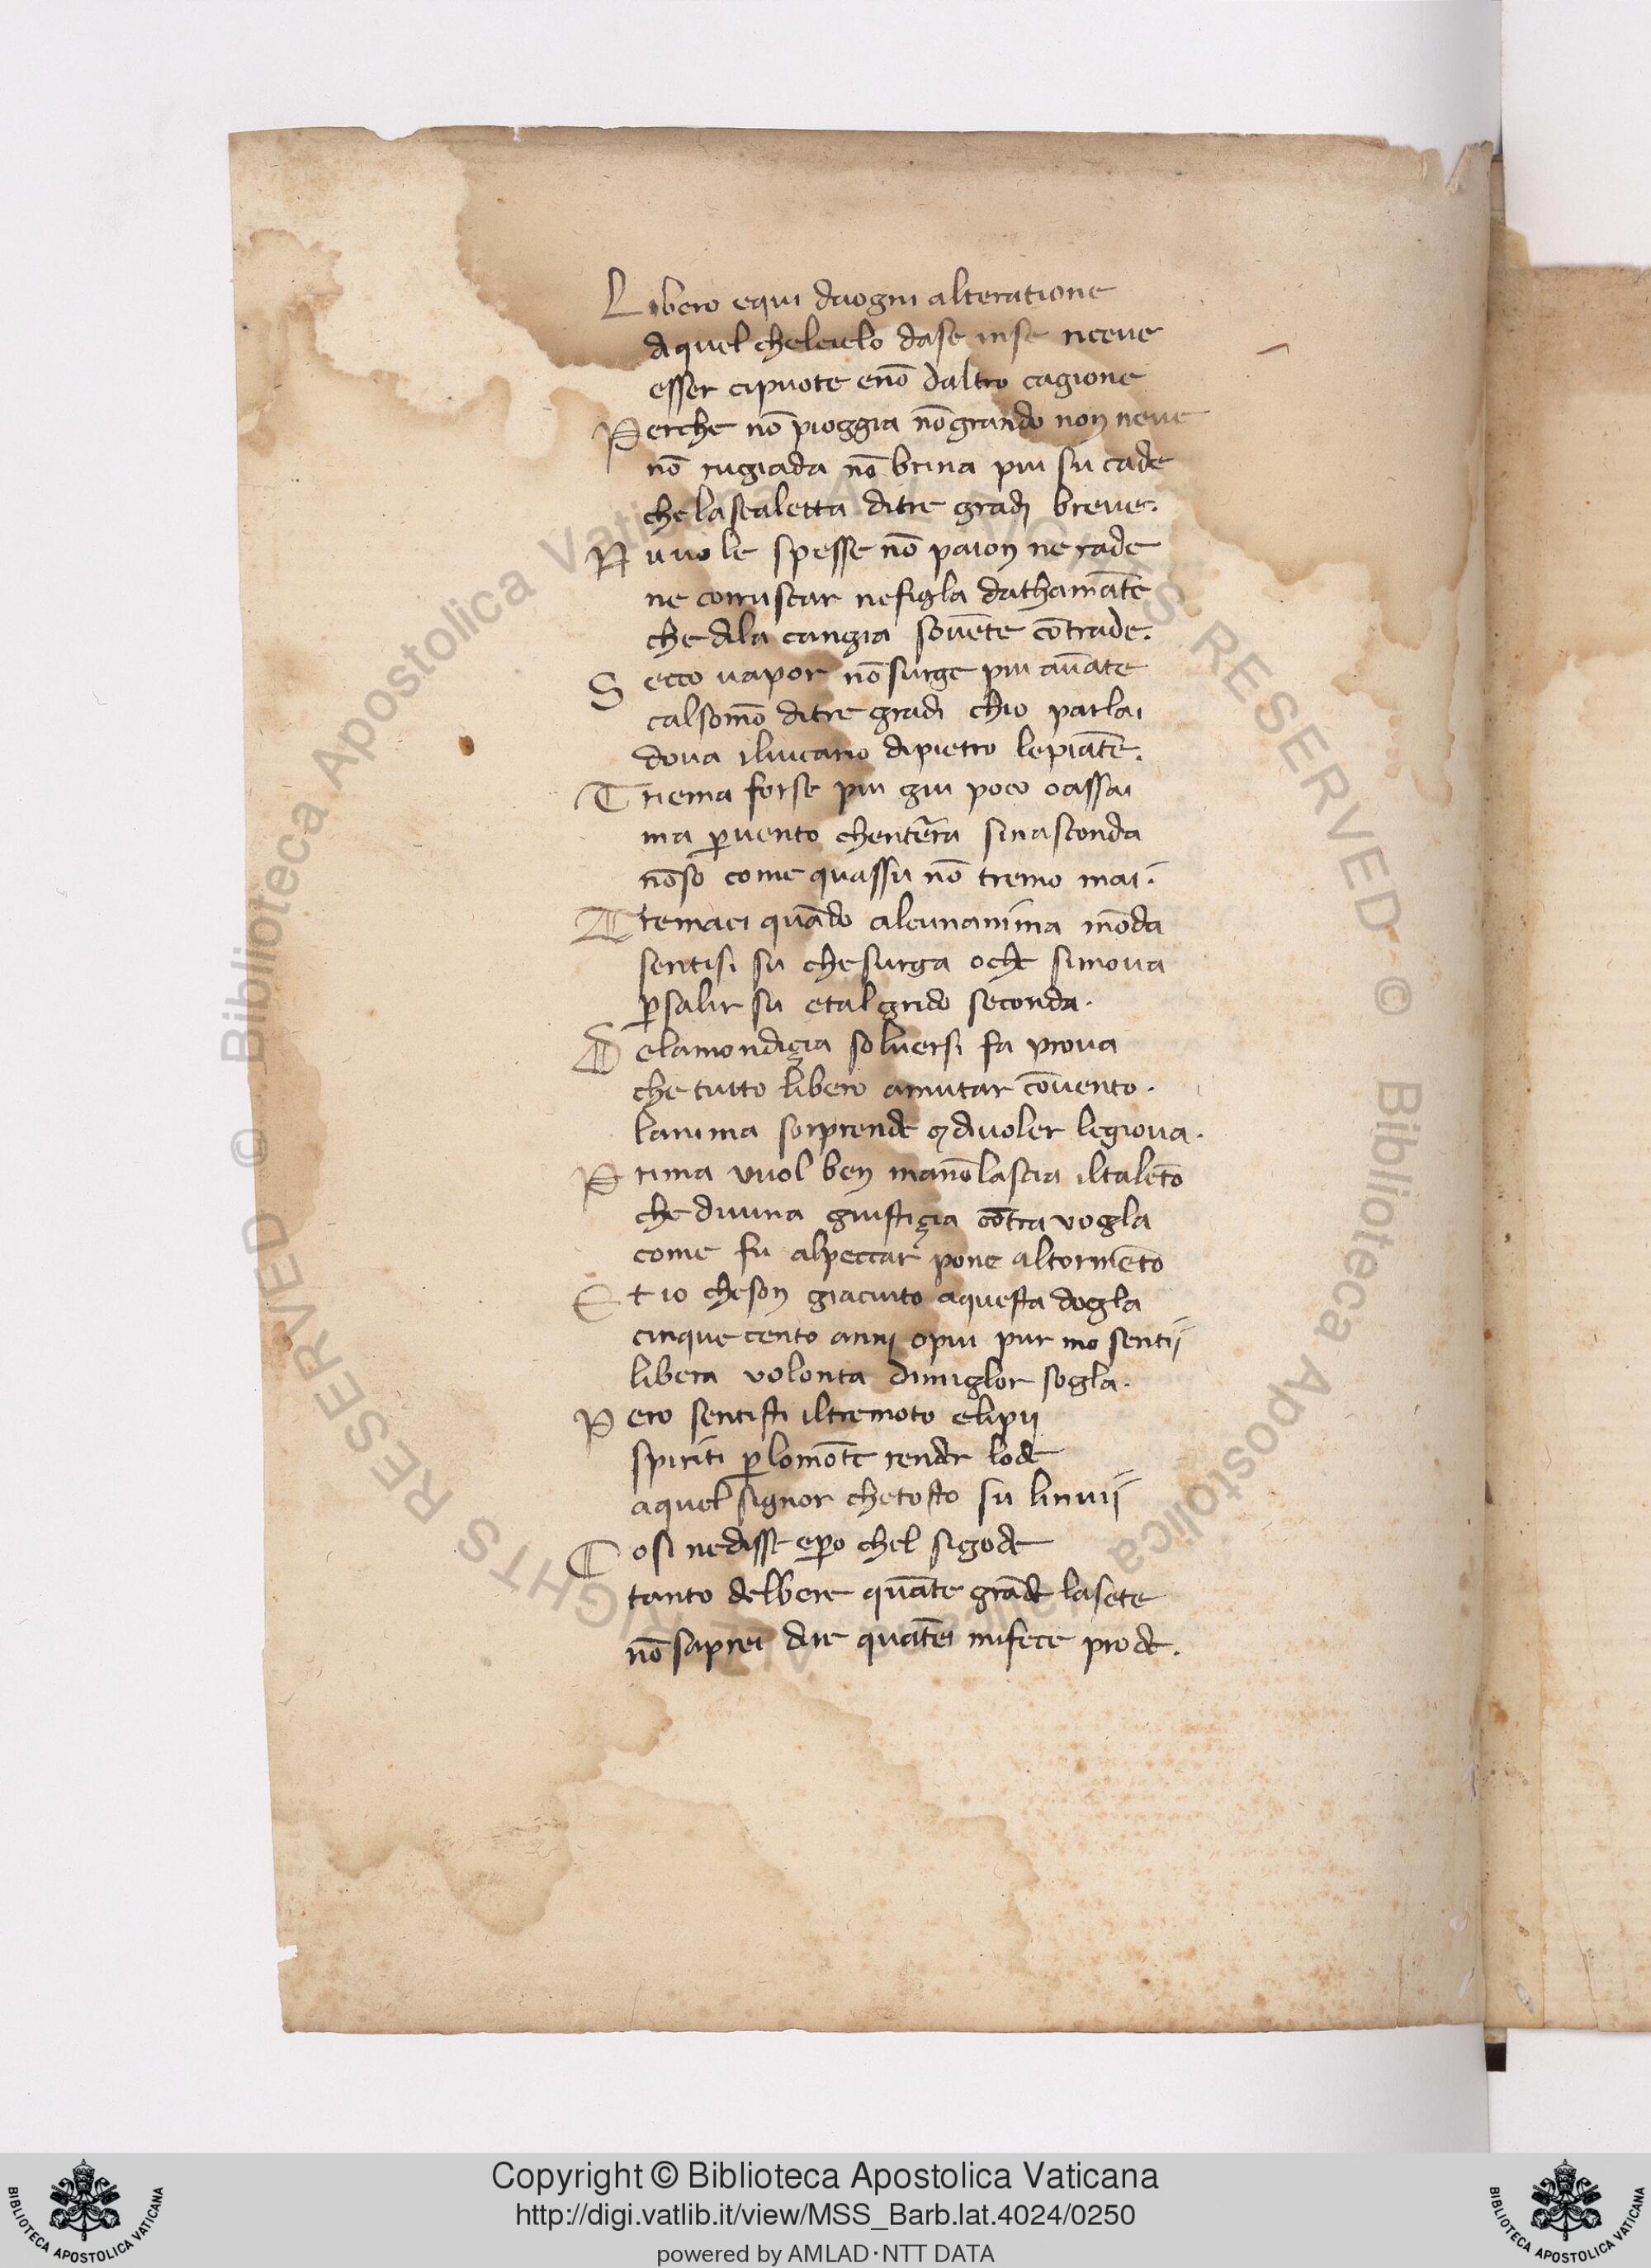 Libero equi daogni alteratione
di quel chelcielo dase inse riceve
esser cipuote enō daltro cagione
Perche nō pioggia nō grando non neve
nō rugiada nō brina piu su cade
che la scaletta di tre gradi breve.
Nuvole spesse nō paion ne rade
ne corruscar ne figla dathamāte
che dila cangia sovēte cōtrade.
Secco vapor nō surge piu avāte
calsomō ditre gradi chio parlai
dova ilvicario dipietro lepiāte.
Triema forse piu giu poco o assai
ma ꝑ vento chentēra sinasconda
nōso come quassu nō tremo mai.
Tremaci quādo alcunanima mōda
sentisi su che surga oche simova
ꝑ salir su etal grido seconda.
Delamondiçia solversi fa prova
che tutto libero amutar cōvento.
lanima sorprende ⁊ divoler legiova.
Prima vuol ben manō lascia iltalēto
che divina giustiçia cōtra vogla
come fu alpeccar pone altormēto
Et io cheson giaciuto aquesta dogla
cinquecento anni opiu pur mo sentii
libera volonta dimiglor sogla.
Pero sentisti iltremoto elipii
spiriti ꝑ lomōte render lode
aquel signor chetosto su linvii
Cosi nedisse eꝑo chel sigode
tanto delbere quāte grāde lasete
nō saprei dire quātei mifece prode.
© Biblioteca Apostolica Vaticana ALL RIGHTS RESERVED © Biblioteca Apostolica Vaticana ALL RIGHTS RESERVED
Copyright © Biblioteca Apostolica Vaticana
http://digi.vatlib.it/view/MSS_Barb.lat.4024/0250
powered by AMLAD·NTT DATA
BIBLIOTECA APOSTOLICA VATICANA
BIBLIOTECA APOSTOLICA VATICANA